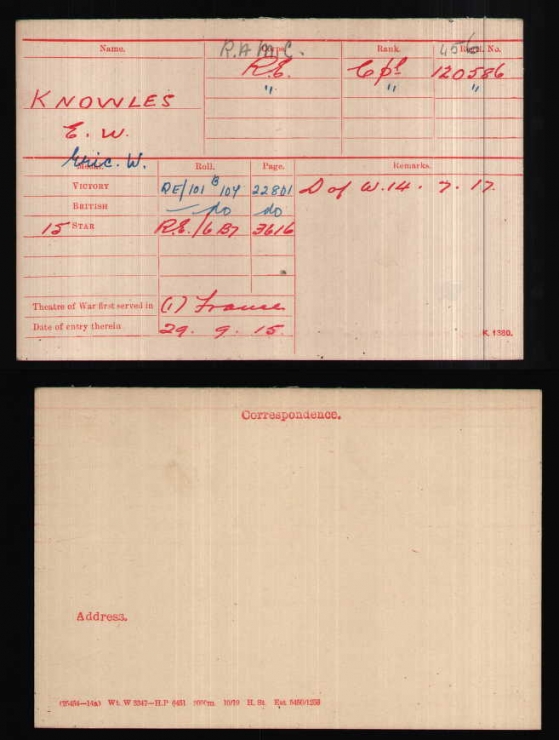 Name. Corps. Rank. Regtl. No.
R.A.M.C. 456
R.E. Cpl 120586
" " "
KNOWLES
E. W.
Eric. W.
Medal. Roll. Page. Remarks.
VICTORY RE/101 B 104 22801 D of W. 14. 7. 17.
BRITISH — do do
15 STAR R.E./6 B7 3616
Theatre of War first served in (1) France
Date of entry therein 29. 9. 15.
K. 1380.
Correspondence.
Address.